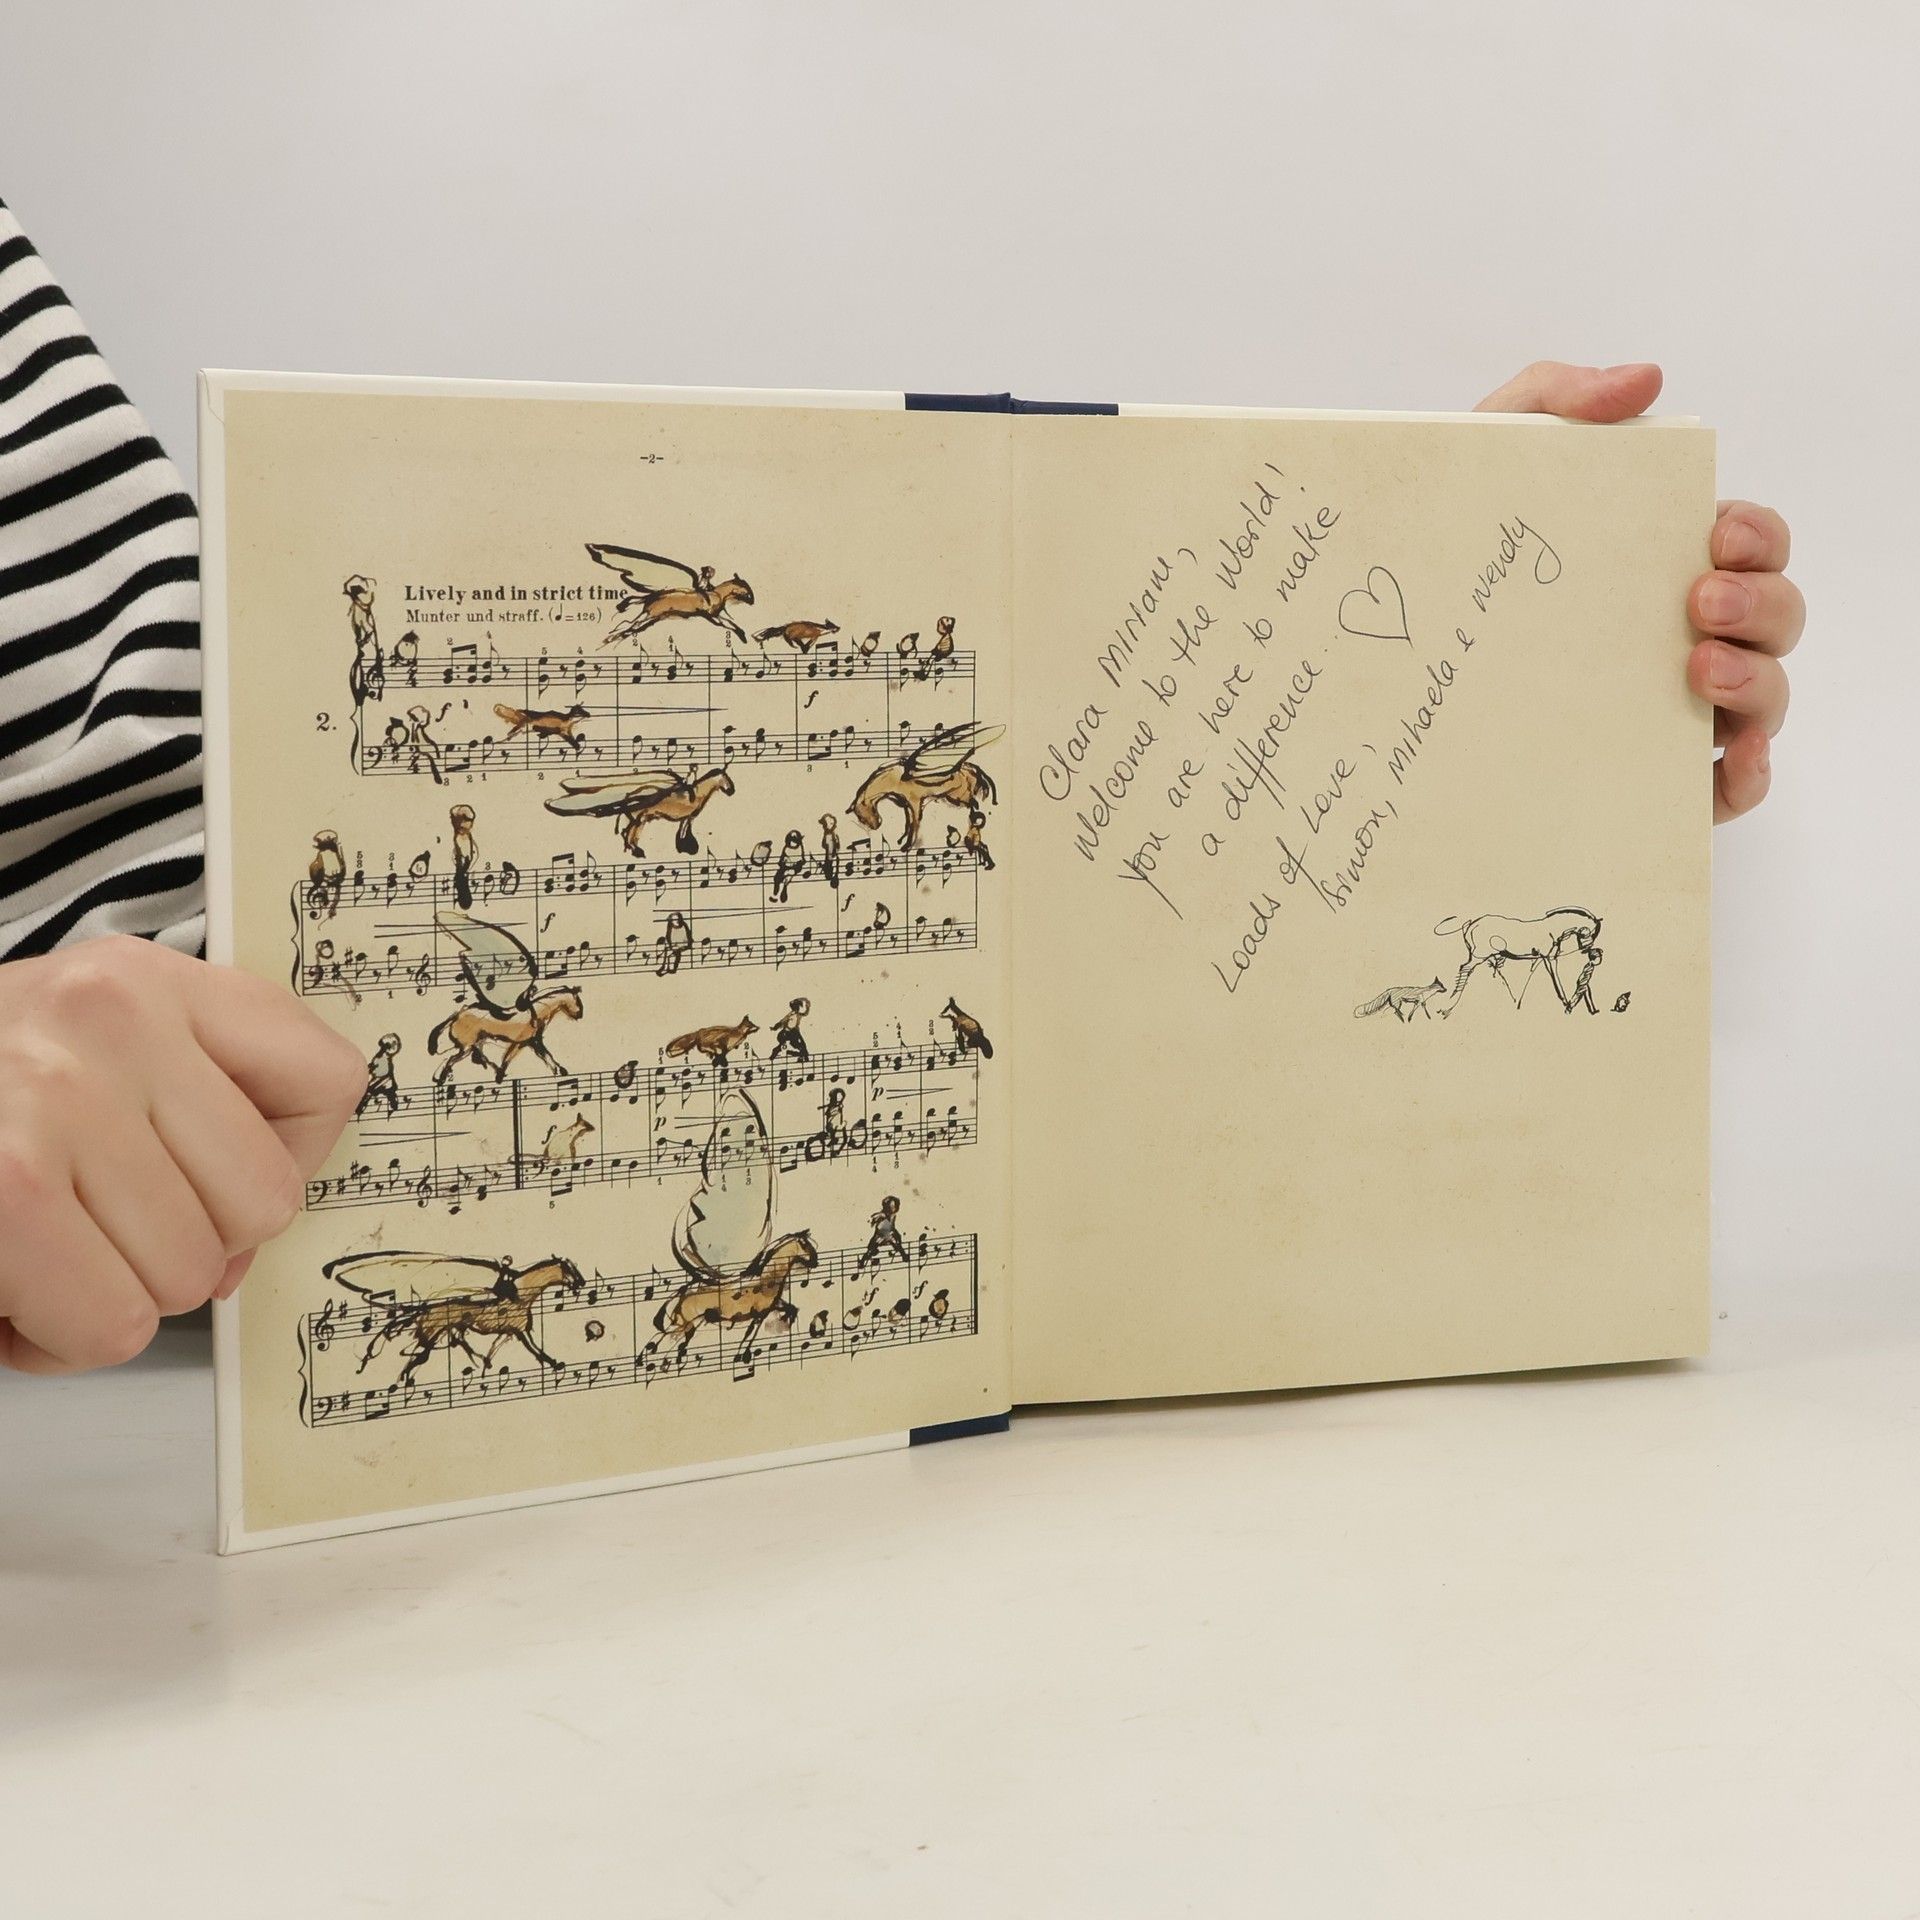 -2-
Lively and in strict time
Munter und straff. (♩=126)
2.
Clara Miriam,
Welcome to the World!
You are here to make
a difference.
Loads of Love,
Simon, Mihaela e Wendy